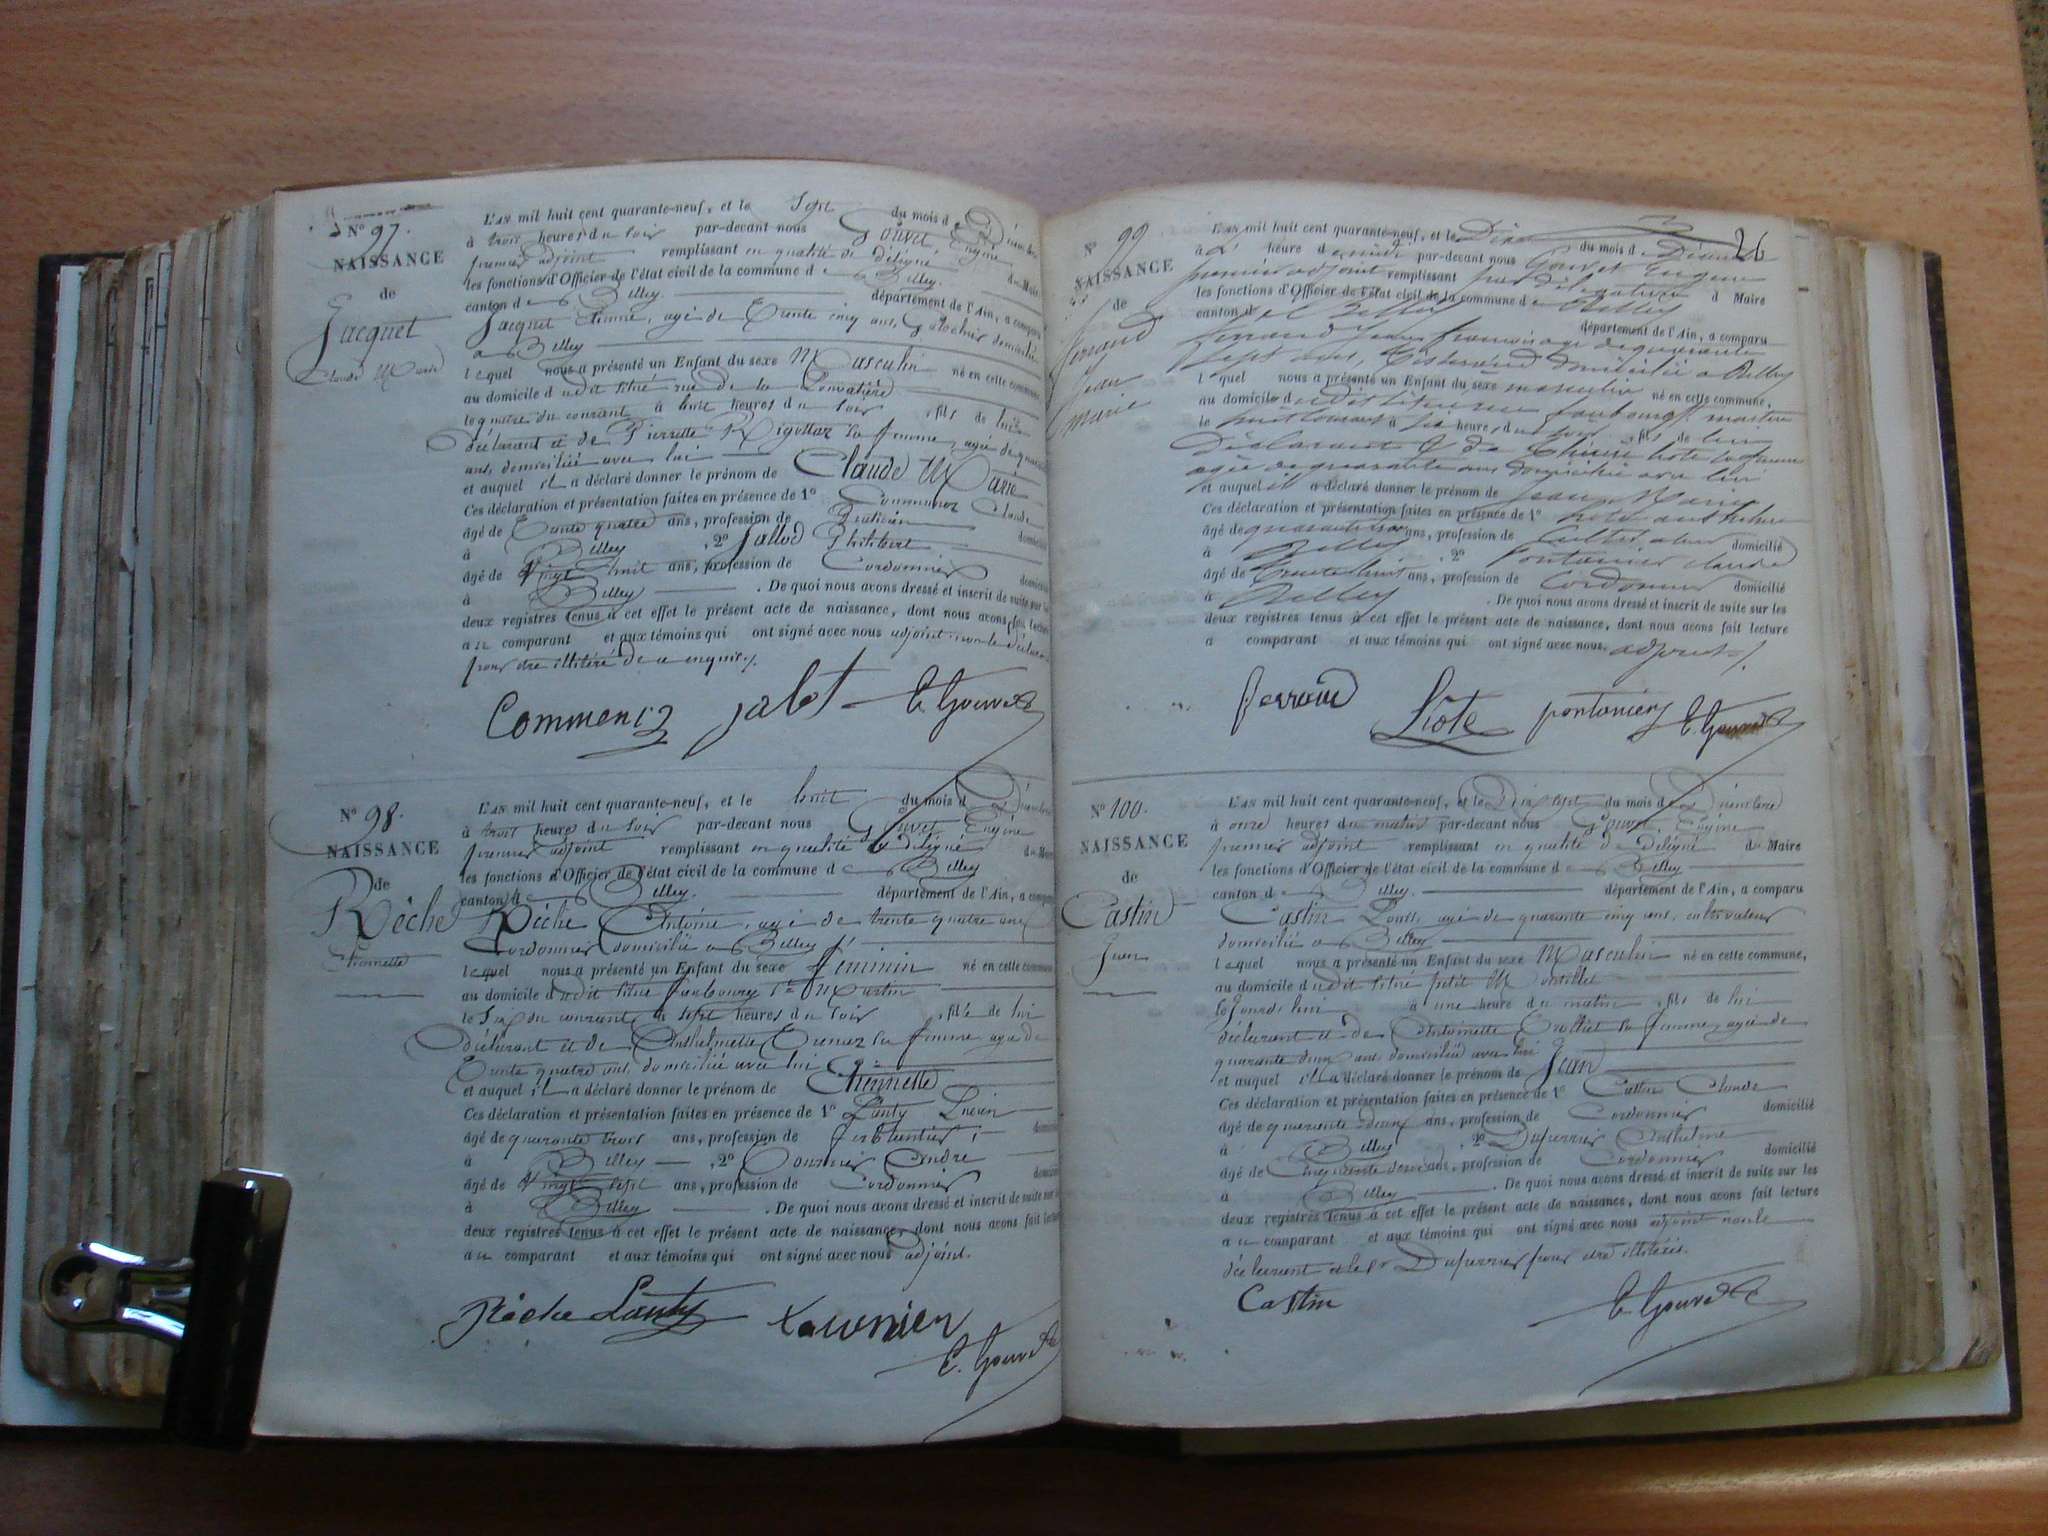 N° 97.
NAISSANCE
de
Jacquet
Claude Marie
L'AN mil huit cent quarante-neuf, et le Sept du mois d
à trois heures du soir par-devant nous Gouvet, Eugène
premier adjoint remplissant en qualité de délégué d u Maire
les fonctions d'Officier de l'état civil de la commune d e Belley.
canton d e Belley. département de l'Ain, a comparu
Jacquet Etienne, agé de Trente cinq ans, domicilié
a Belley
lequel nous a présenté un Enfant du sexe Masculin né en cette commune,
au domicile dudit situé rue de la
le quatre du courant à huit heures du soir, fils de lui
déclarant et de Pierrette Rigollet sa femme, agée de
ans, domiciliée avec lui
et auquel il a déclaré donner le prénom de Claude Marie
Ces déclaration et présentation faites en présence de 1° Claude
âgé de Trente quatre ans, profession de Praticien domicilié
à Belley, 2° Jallod Philibert
âgé de Vingt huit ans, profession de Cordonnier domicilié
à Belley. De quoi nous avons dressé et inscrit de suite sur les
deux registres tenus à cet effet le présent acte de naissance, dont nous avons fait lecture
au comparant et aux témoins qui ont signé avec nous adjoint non le déclarant
pour être illitéré de ce enquis ./.
jalot E. Gouvet
N° 98.
NAISSANCE
de
Rêche
Etiennette
L'AN mil huit cent quarante-neuf, et le huit du mois d Décembre
à trois heures du soir par-devant nous Gouvet, Eugène
premier adjoint remplissant en qualité de délégué d u Maire
les fonctions d'Officier de l'état civil de la commune d e Belley
canton d e Belley. département de l'Ain, a comparu
Rêche Antoine, agé de trente quatre ans
Cordonnier domicilié a Belley
lequel nous a présenté un Enfant du sexe féminin né en cette commune
au domicile dudit situé faubourg St Martin
le Six du courant à sept heures du soir, fille de lui
déclarant et de Anthelmette sa femme agée de
Trente quatre ans, domiciliée avec lui
et auquel il a déclaré donner le prénom de Etiennette
Ces déclaration et présentation faites en présence de 1° Lanty Lucien
âgé de quarante trois ans, profession de ferblantier,
à Belley, 2° André
âgé de Vingt sept ans, profession de Cordonnier domicilié
à Belley. De quoi nous avons dressé et inscrit de suite sur les
deux registres tenus à cet effet le présent acte de naissance, dont nous avons fait lecture
au comparant et aux témoins qui ont signé avec nous adjoint.
Rêche Lanty
E. Gouvet
26
N° 99
NAISSANCE
de
ferraud
Jean
marie
L'AN mil huit cent quarante-neuf, et le Dix du mois d e Décembre
à heure d e midi par-devant nous Gouvet Eugene
premier adjoint remplissant par délégation d Maire
les fonctions d'Officier de l'état civil de la commune d e Belley
canton d e Belley département de l'Ain, a comparu
ferraud Jean francois agé de quarante
sept ans, domicilié a Belley
lequel nous a présenté un Enfant du sexe masculin né en cette commune,
au domicile dudit situé faubourg St martin
le huit courant à six heures du soir, fils de lui
Déclarant & de Liote sa femme
agée de quarante ans domiciliée avec lui
et auquel il a déclaré donner le prénom de Jean Marie
Ces déclaration et présentation faites en présence de 1° Liote anthelme
âgé de quarante ans, profession de Cultivateur domicilié
à Belley, 2° Pontannier claude
âgé de Trente huit ans, profession de Cordonnier domicilié
à Belley. De quoi nous avons dressé et inscrit de suite sur les
deux registres tenus à cet effet le présent acte de naissance, dont nous avons fait lecture
a comparant et aux témoins qui ont signé avec nous, adjoint ./.
ferraud Liote pontanier E. Gouvet
N° 100.
NAISSANCE
de
Castin
Jean
L'AN mil huit cent quarante-neuf, et le Dix sept du mois d e Décembre
à onze heures du matin par-devant nous Gouvet, Eugène
premier adjoint remplissant en qualité de délégué d u Maire
les fonctions d'Officier de l'état civil de la commune d e Belley
canton d e Belley. département de l'Ain, a comparu
Castin Louis, agé de quarante cinq ans, cultivateur
domicilié a Belley
lequel nous a présenté un Enfant du sexe Masculin né en cette commune,
au domicile dudit situé petit
le jourd'hui à une heure du matin, fils de lui
déclarant et de Antoinette sa femme, agée de
quarante deux ans domiciliée avec lui
et auquel il a déclaré donner le prénom de Jean
Ces déclaration et présentation faites en présence de 1° Claude
âgé de quarante deux ans, profession de Cordonnier domicilié
à Belley, 2° Duferrier Anthelme
âgé de Cinquante deux ans, profession de Cordonnier domicilié
à Belley. De quoi nous avons dressé et inscrit de suite sur les
deux registres tenus à cet effet le présent acte de naissance, dont nous avons fait lecture
au comparant et aux témoins qui ont signé avec nous adjoint non le
déclarant et le Sr Duferrier pour être illitérés.
Castin E. Gouvet